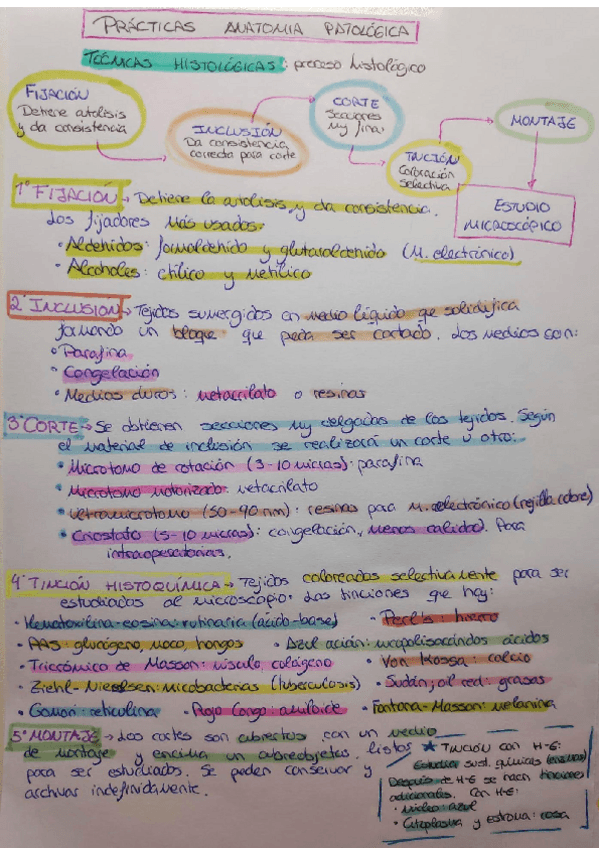 PRÁCTICAS ANATOMIA PATOLÓGICA
TÉCNICAS HISTOLÓGICAS: proceso histológico
FIJACIÓN
Detiene autolisis
y da consistencia
INCLUSIÓN
Da consistencia
correcta para corte
CORTE
Secciones
muy finas
TINCIÓN
Coloración
Selectiva
MONTAJE
ESTUDIO
MICROSCÓPICO
1º FIJACIÓN → Detiene la autolisis y da consistencia.
Los fijadores más usados:
• Aldehidos: formaldehido y glutaraldehido (M. electrónico)
• Alcoholes: etílico y metílico
2º INCLUSIÓN → Tejidos sumergidos en medio líquido qe solidifica
formando un bloque que pueda ser cortado. Los medios son:
• Parafina
• Congelación
• Medios duros: metacrilato o resinas
3º CORTE → Se obtienen secciones muy delgadas de los tejidos. Según
el material de inclusión se realizará un corte u otro:
• Microtomo de rotación (3-10 micras): parafina
• Microtomo motorizado: metacrilato
• Ultramicrotomo (50-90 nm): resinas para M. electrónico (rejilla cobre)
• Criostato (5-10 micras): congelación, menos calidad. Para
intraoperatorias.
4º TINCIÓN HISTOQUÍMICA → Tejidos coloreados selectivamente para ser
estudiados al microscopio. Las tinciones que hay:
• Hematoxilina-eosina: rutinaria (ácido-base) • Perls: hierro
• PAS: glucógeno, moco, hongos • Azul alcián: mucopolisacáridos ácidos
• Tricrómico de Masson: músculo, colágeno • Von Kossa: calcio
• Ziehl-Nieelsen: micobacterias (tuberculosis) • Sudán, oil red: grasas
• Gomori: reticulina • Rojo Congo: amiloide • Fontana-Masson: melanina
5º MONTAJE → Los cortes son cubiertos con un medio
de montaje y encima un cubreobjetos, listos
para ser estudiados. Se pueden conservar y
archivar indefinidamente.
★ TINCIÓN con H-E:
Estudiar sust. químicas
Después de H-E se hacen tinciones
adicionales. Con H-E:
• Núcleo: azul
• Citoplasma y estroma: rosa